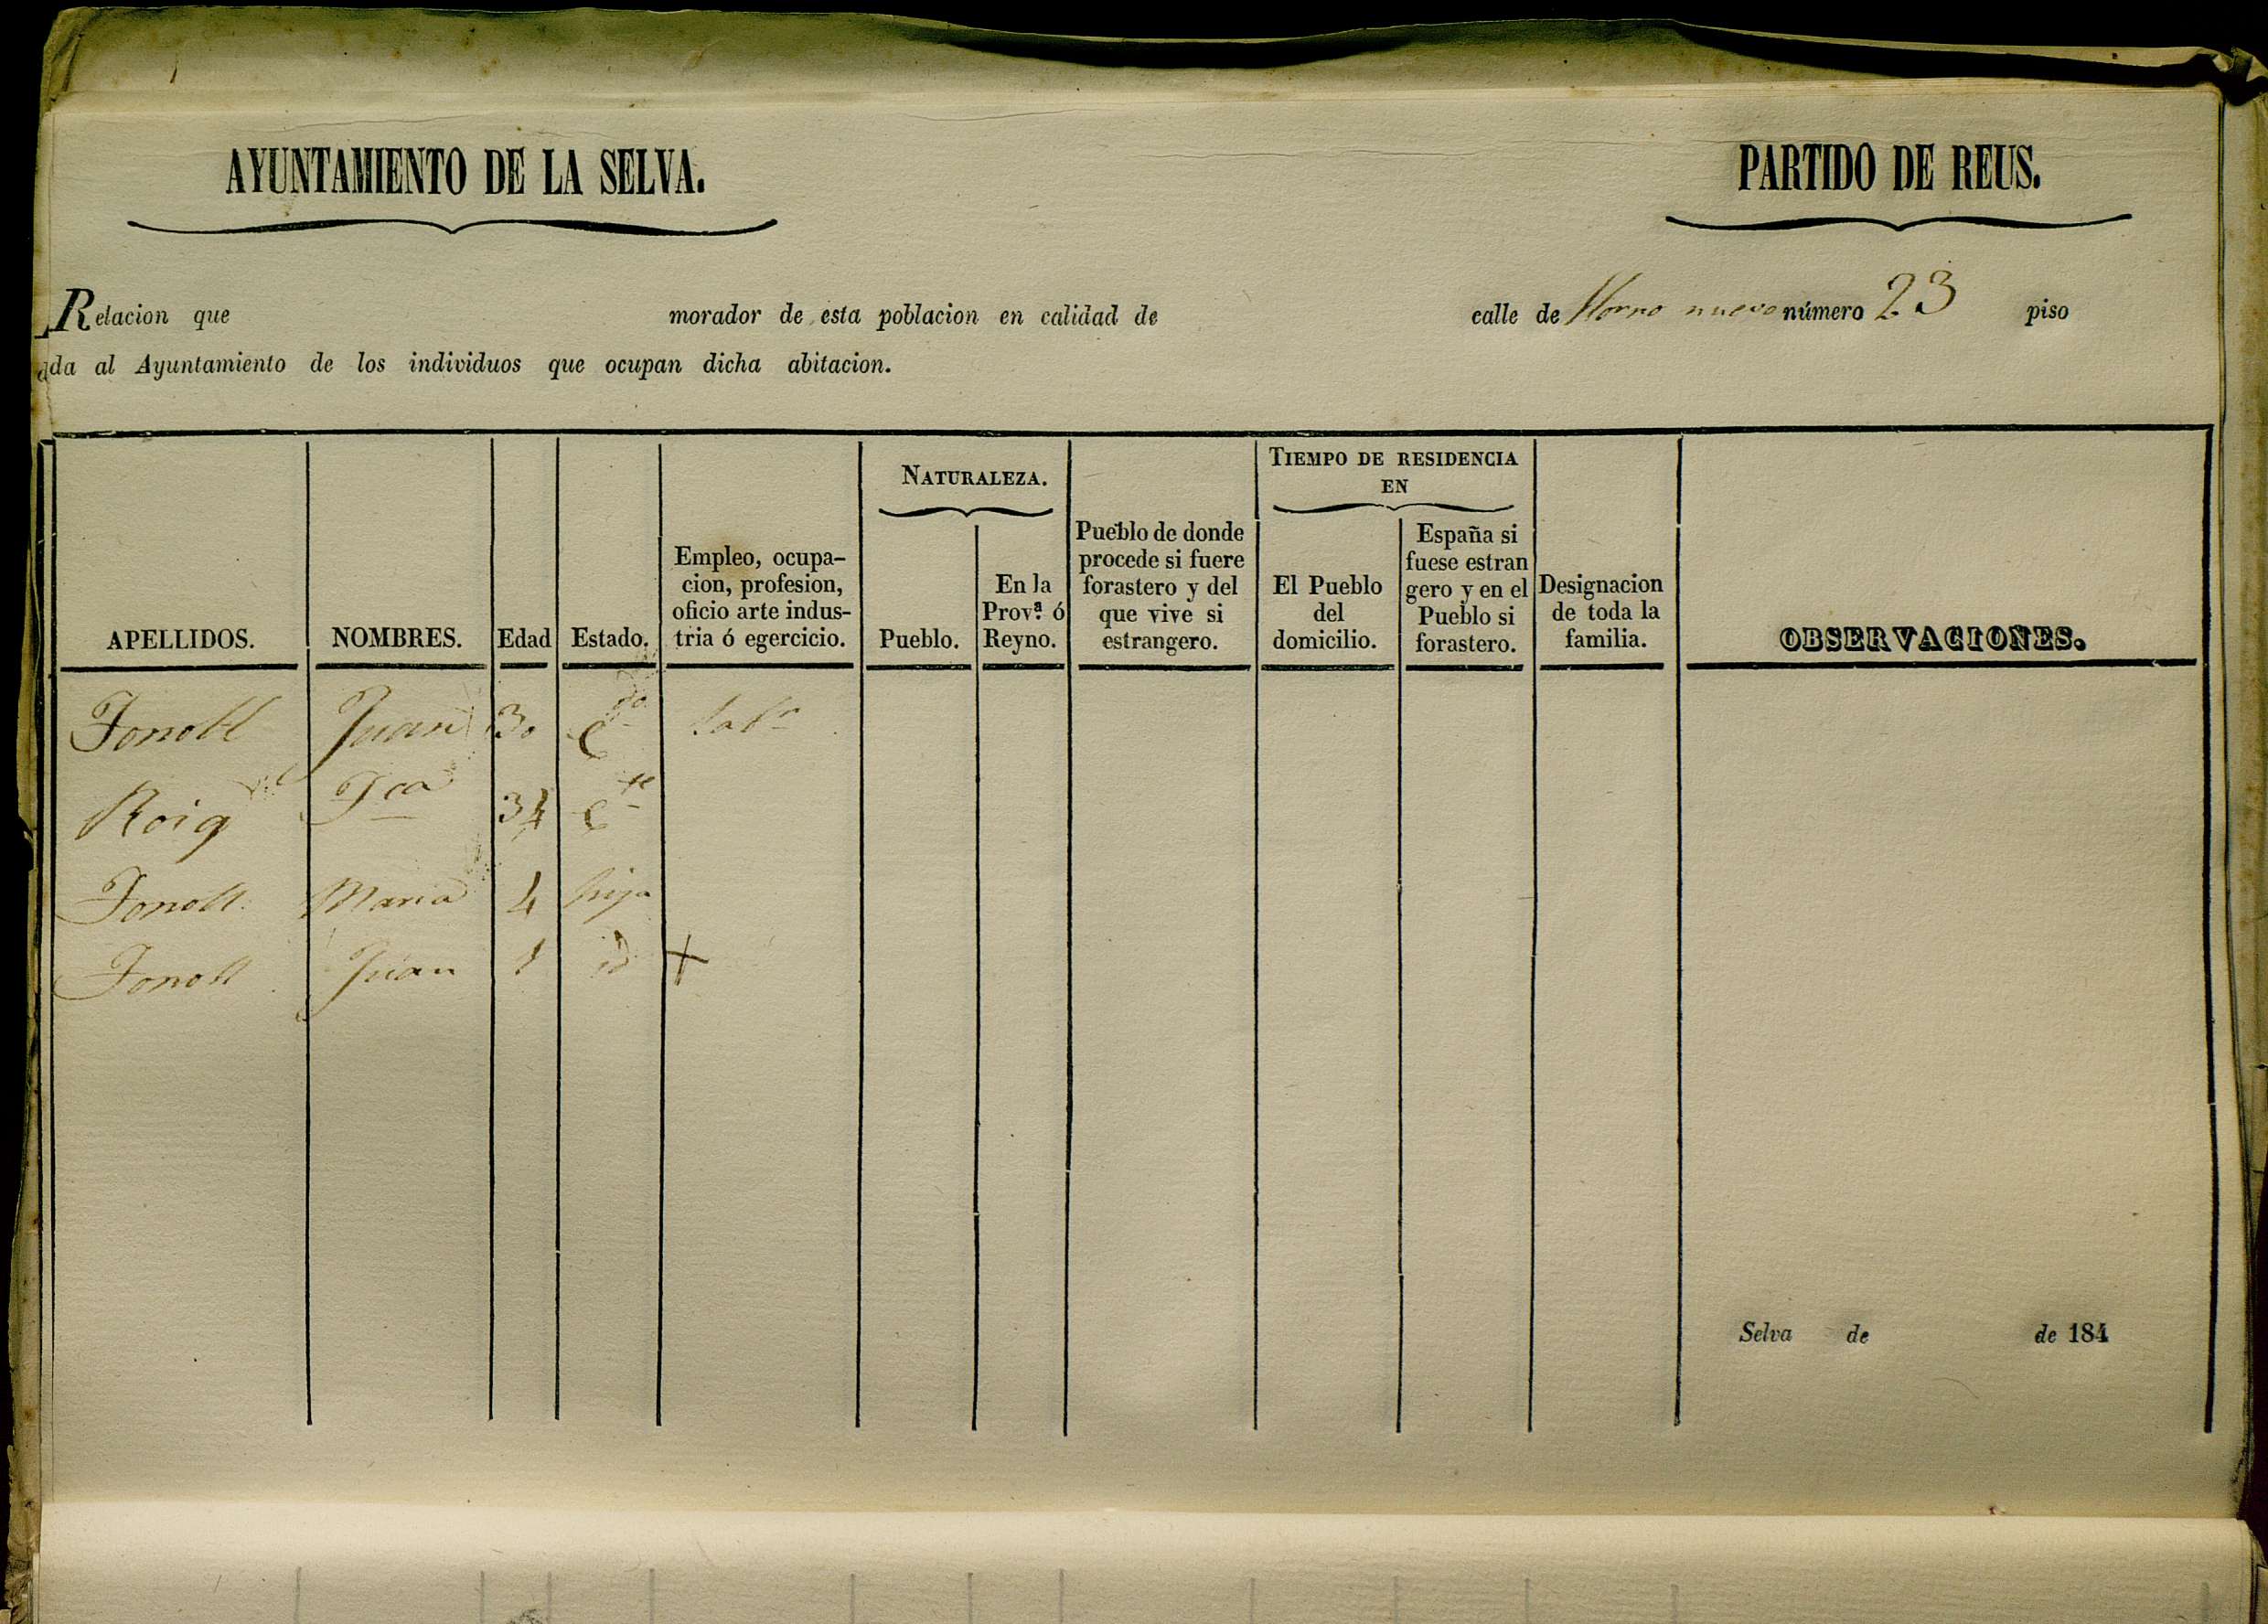 AYUNTAMIENTO DE LA SELVA.
PARTIDO DE REUS.
Relacion que morador de esta poblacion en calidad de calle de Horno nuevo número 23 piso
da al Ayuntamiento de los individuos que ocupan dicha abitacion.
APELLIDOS.
NOMBRES.
Edad
Estado.
Empleo, ocupa-
cion, profesion,
oficio arte indus-
tria ó egercicio.
NATURALEZA.
Pueblo.
En la
Prov.ª ó
Reyno.
Pueblo de donde
procede si fuere
forastero y del
que vive si
estrangero.
TIEMPO DE RESIDENCIA
EN
El Pueblo
del
domicilio.
España si
fuese estran
gero y en el
Pueblo si
forastero.
Designacion
de toda la
familia.
OBSERVACIONES.
Fonoll Juan 30 C.do Lab.r
Roig Fca 34 C.te
Fonoll Maria 4 hija
Fonoll Juan 1 id +
Selva de de 184